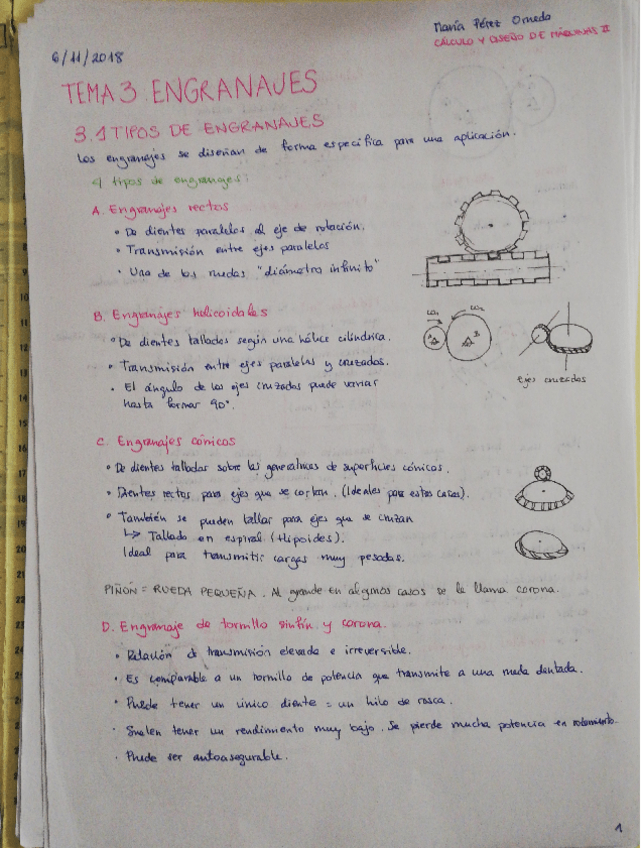 María Pérez Olmedo
CÁLCULO Y DISEÑO DE MÁQUINAS II
6/11/2018
TEMA 3. ENGRANAJES
3.1 TIPOS DE ENGRANAJES
Los engranajes se diseñan de forma específica para una aplicación.
4 tipos de engranajes:
A. Engranajes rectos
• De dientes paralelos al eje de rotación.
• Transmisión entre ejes paralelos
• Una de las ruedas "diámetro infinito"
B. Engranajes helicoidales
• De dientes tallados según una hélice cilíndrica.
• Transmisión entre ejes paralelos y cruzados.
• El ángulo de los ejes cruzados puede variar
hasta formar 90°.
Ejes cruzados
C. Engranajes cónicos
• De dientes tallados sobre las generatrices de superficies cónicas.
• Dientes rectos para ejes que se cortan. (Ideales para estos casos).
• También se pueden tallar para ejes que se cruzan
↳ Tallado en espiral (Hipoides).
Ideal para transmitir cargas muy pesadas.
PIÑÓN = RUEDA PEQUEÑA. Al grande en algunos casos se le llama corona.
D. Engranaje de tornillo sinfín y corona.
• Relación de transmisión elevada e irreversible.
• Es comparable a un tornillo de potencia que transmite a una rueda dentada.
• Puede tener un único diente = un hilo de rosca.
• Suelen tener un rendimiento muy bajo. Se pierde mucha potencia en rozamiento.
• Puede ser autoasegurable.
1